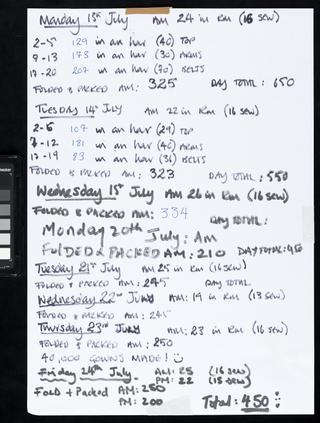 Monday 13th July AM 24 in Rm (16 sew)
2-5 129 in an har (40) TOP
9-13 173 in an har (30) ARMS
17-20 202 in an har (70) BELTS
FOLDED & PACKED AM: 325 DAY TOTAL: 650
Tuesday 14th July AM 22 in Rm (16 sew)
2-6 107 in an har (29) TOP
7-12 181 in an har (40) ARMS
17-19 83 in an har (36) BELTS
FOLDED & PACKED AM: 323 DAY TOTAL: 550
Wednesday 15th July AM 26 in Rm (16 sew)
FOLDED & PACKED AM: 334 DAY TOTAL:
Monday 20th July: Am
FOLDED & PACKED AM: 210 DAY TOTAL: 450
Tuesday 21st July AM 25 in Rm (16 sew)
FOLDED & PACKED AM: 245 DAY TOTAL
Wednesday 22nd July AM: 19 in Rm (13 sew)
FOLDED & PACKED AM: 245
Thursday 23rd July AM: 23 in Rm (16 sew)
FOLDED & PACKED AM: 250
40,000 GOWNS MADE!
Friday 24th July AM: 25 (16 sew)
PM: 22 (15 sew)
Fold + Packed AM: 250
PM: 200 Total: 450